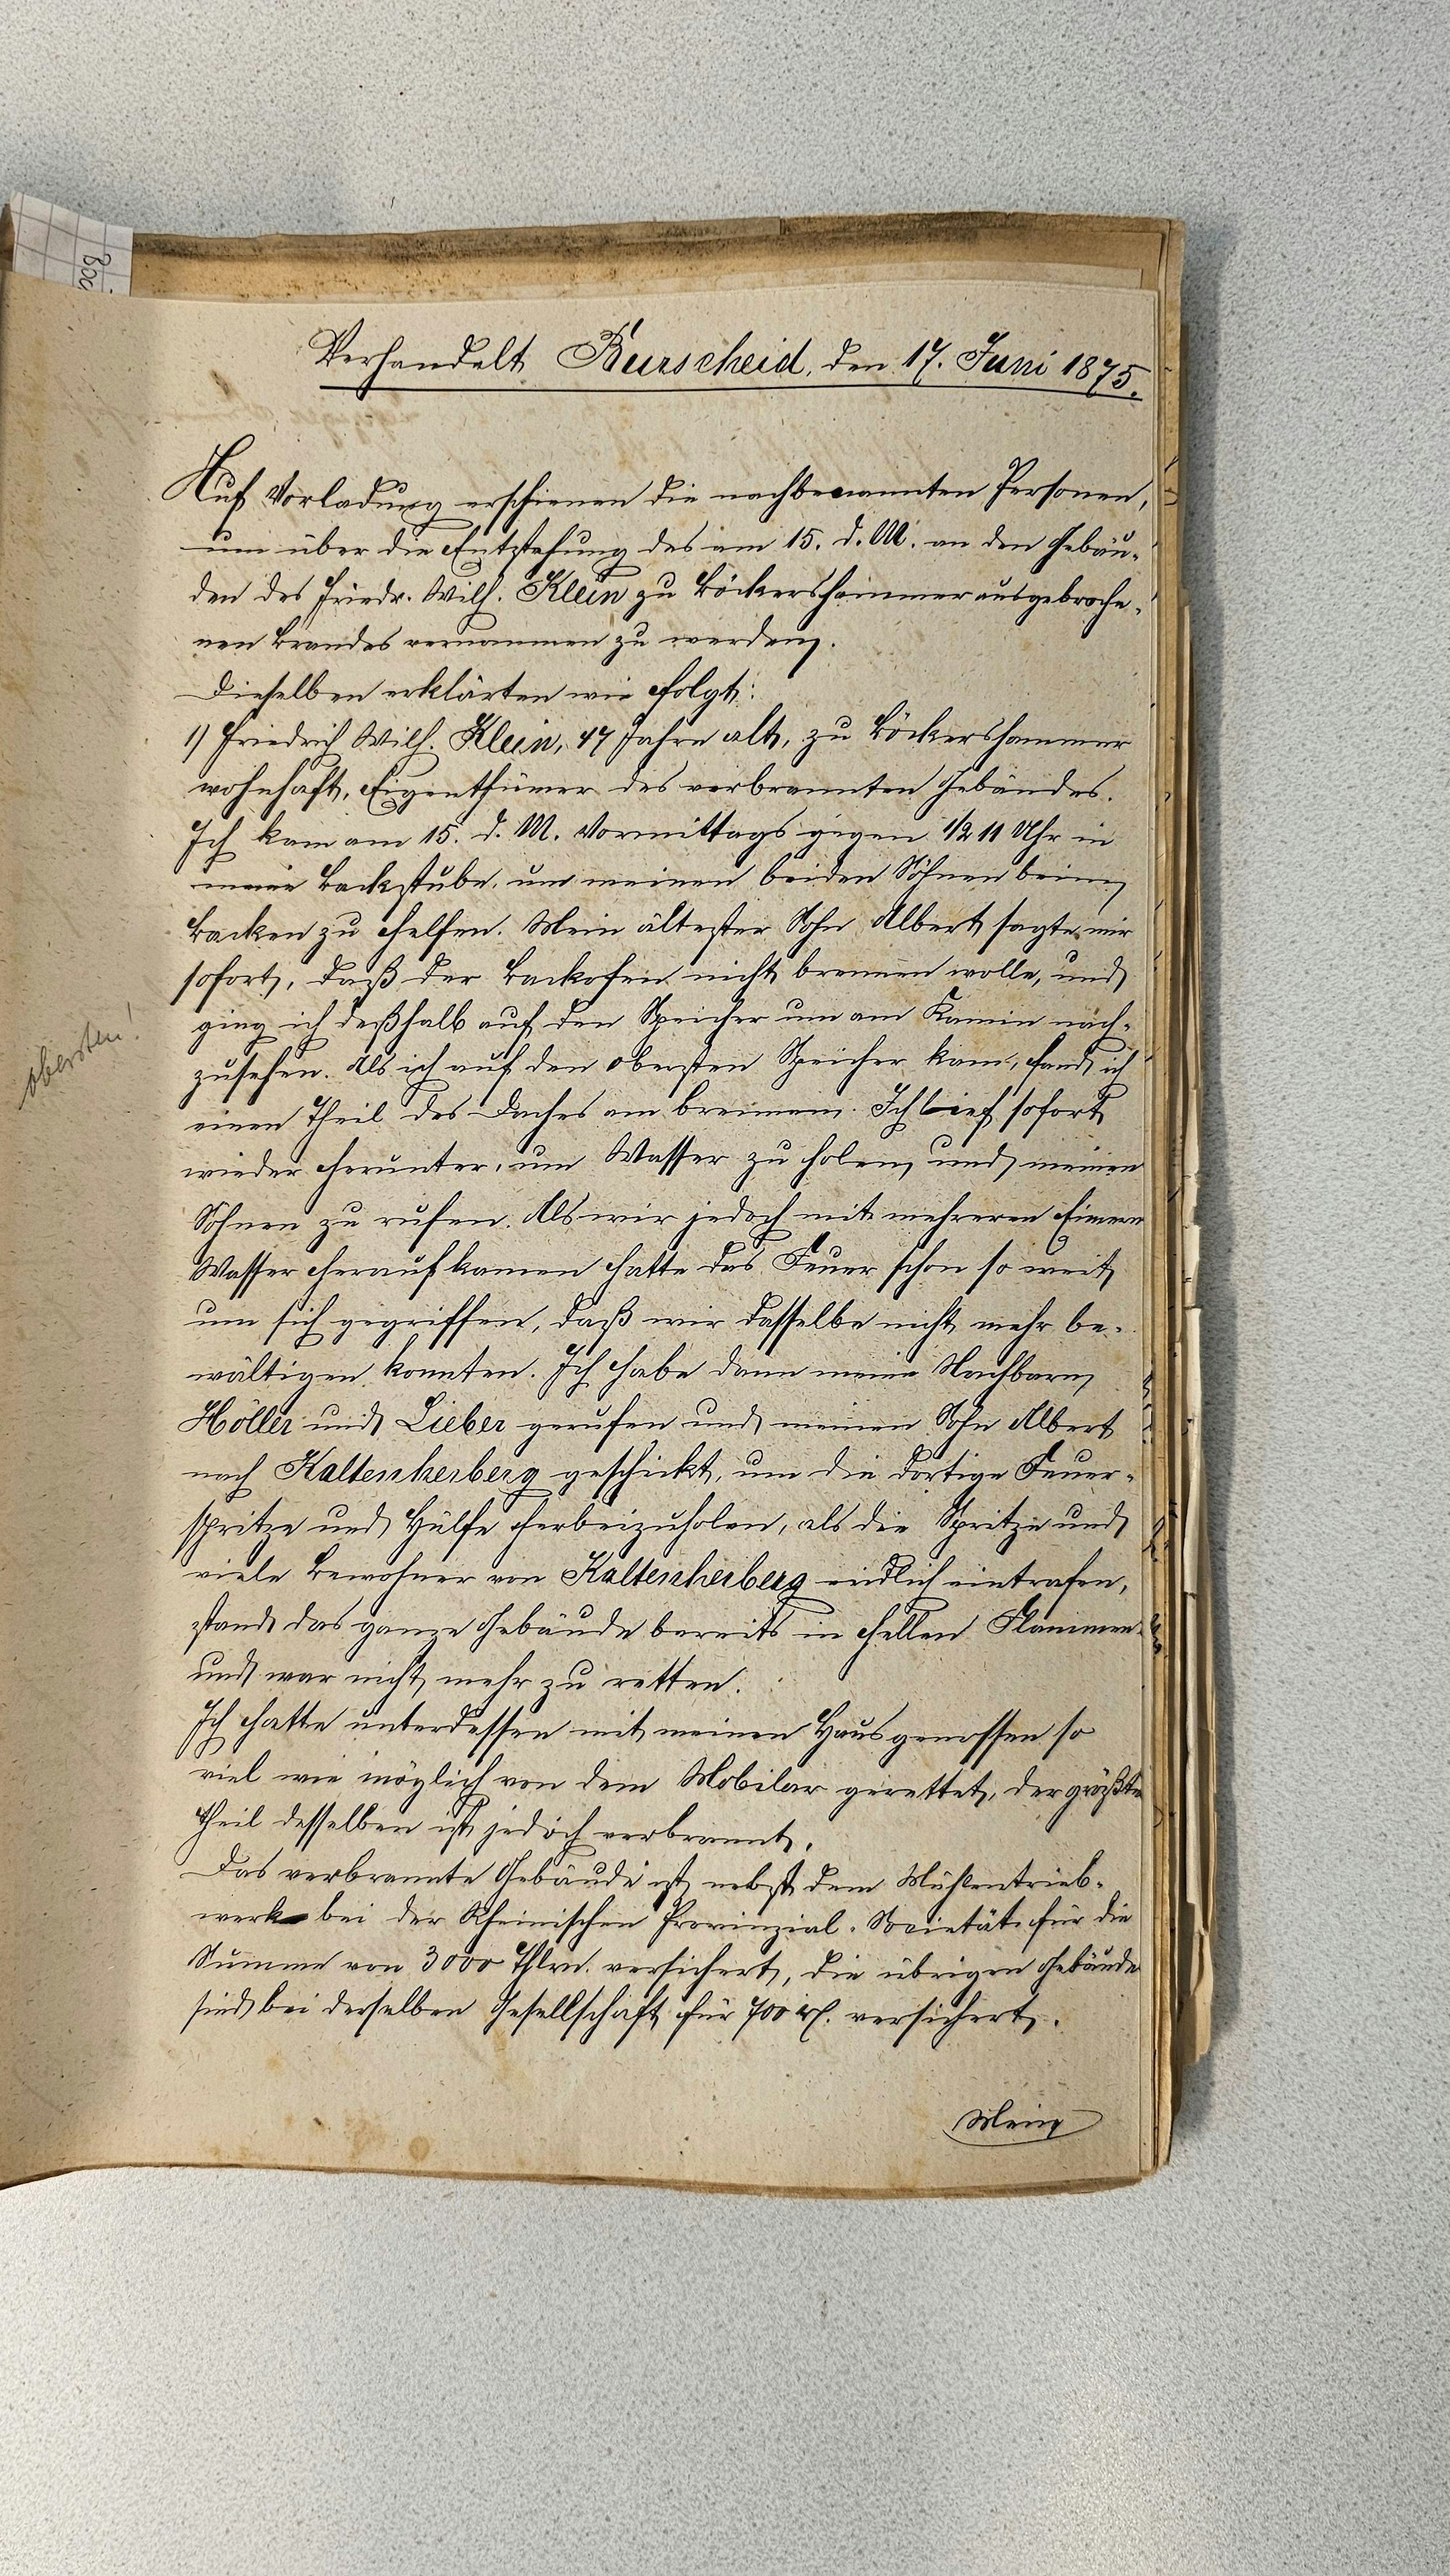 Verhandelt Burscheid, den 17. Juni 1875.
Auf Vorladung erschienen die nachbenannten Personen,
um über die Entstehung des am 15. d. M. an den Gebäu-
den des Friedr. Wilh. Klein zu Böckershammer ausgebroche-
nen Brandes vernommen zu werden.
Dieselben erklärten wie folgt:
1) Friedrich Wilh. Klein, 47 Jahre alt, zu Böckershammer
wohnhaft, Eigenthümer des verbrannten Gebäudes.
Ich kam am 15. d. M. Vormittags gegen 1/2 11 Uhr in
meine Backstube, um meinen beiden Söhnen beim
Backen zu helfen. Mein ältester Sohn Albert sagte mir
sofort, daß der Backofen nicht brennen wolle, und
ging ich deßhalb auf den Speicher um am Kamin nach-
zusehen. Als ich auf den obersten Speicher kam, fand ich
obersten!
einen Theil des Daches am brennen. Ich lief sofort
wieder herunter, um Wasser zu holen, und meinen
Söhnen zu rufen. Als wir jedoch mit mehreren Eimern
Wasser heraufkamen hatte das Feuer schon so weit
um sich gegriffen, daß wir dasselbe nicht mehr be-
wältigen konnten. Ich habe dann meine Nachbarn
Höller und Lieber gerufen und meinen Sohn Albert
nach Kaltenherberg geschickt, um die dortige Feuer-
spritze und Hülfe herbeizuholen, als die Spritze und
viele Bewohner von Kaltenherberg endlich eintrafen,
stand das ganze Gebäude bereits in hellen Flammen
und war nicht mehr zu retten.
Ich hatte unterdessen mit meinen Hausgenossen so
viel wie möglich von dem Mobilar gerettet, der größte
Theil desselben ist jedoch verbrannt.
Das verbrannte Gebäude ist nebst dem Mühlentrieb-
werk bei der Rheinischen Provinzial-Societät für die
Summe von 3000 Thlrn. versichert, die übrigen Gebäude
sind bei derselben Gesellschaft für 700 versichert.
Mein